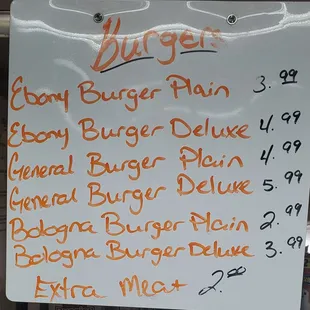 Burgers
Ebony Burger Plain 3.99
Ebony Burger Deluxe 4.99
General Burger Plain 4.99
General Burger Deluxe 5.99
Bologna Burger Plain 2.99
Bologna Burger Deluxe 3.99
Extra Meat 2.00